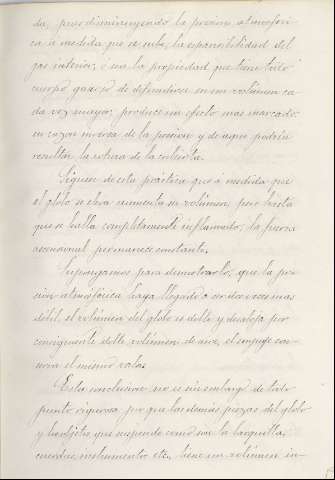 da, pues disminuyendo la presion atmosferi-
ca á medida que se sube, la espansibilidad del
gas interior, ó sea la propiedad que tiene todo
cuerpo gaseoso de difundirse en un volúmen ca-
da vez mayor, produce un efecto mas marcado
en razon inversa de la presion y de aqui podria
resultar la rotura de la cubierta.
Síguese de esta práctica que á medida que
el globo se eleva aumenta su volúmen, pero hasta
que se halla completamente inflamado, la fuerza
ascensional permanece constante.
Supongamos para demostrarlo, que la pre-
sion atmosférica haya llegado á ser dos veces mas
débil, el volúmen del globo es doble y desaloja por
consiguiente doble volúmen de aire, el empuje con-
serva el mismo valor.
Esta conclusion no es sin embargo de todo
punto rigorosa por que las demás piezas del globo
y los objetos que suspende como son la barquilla,
cuerdas, instrumentos etc. tiene un volúmen in-